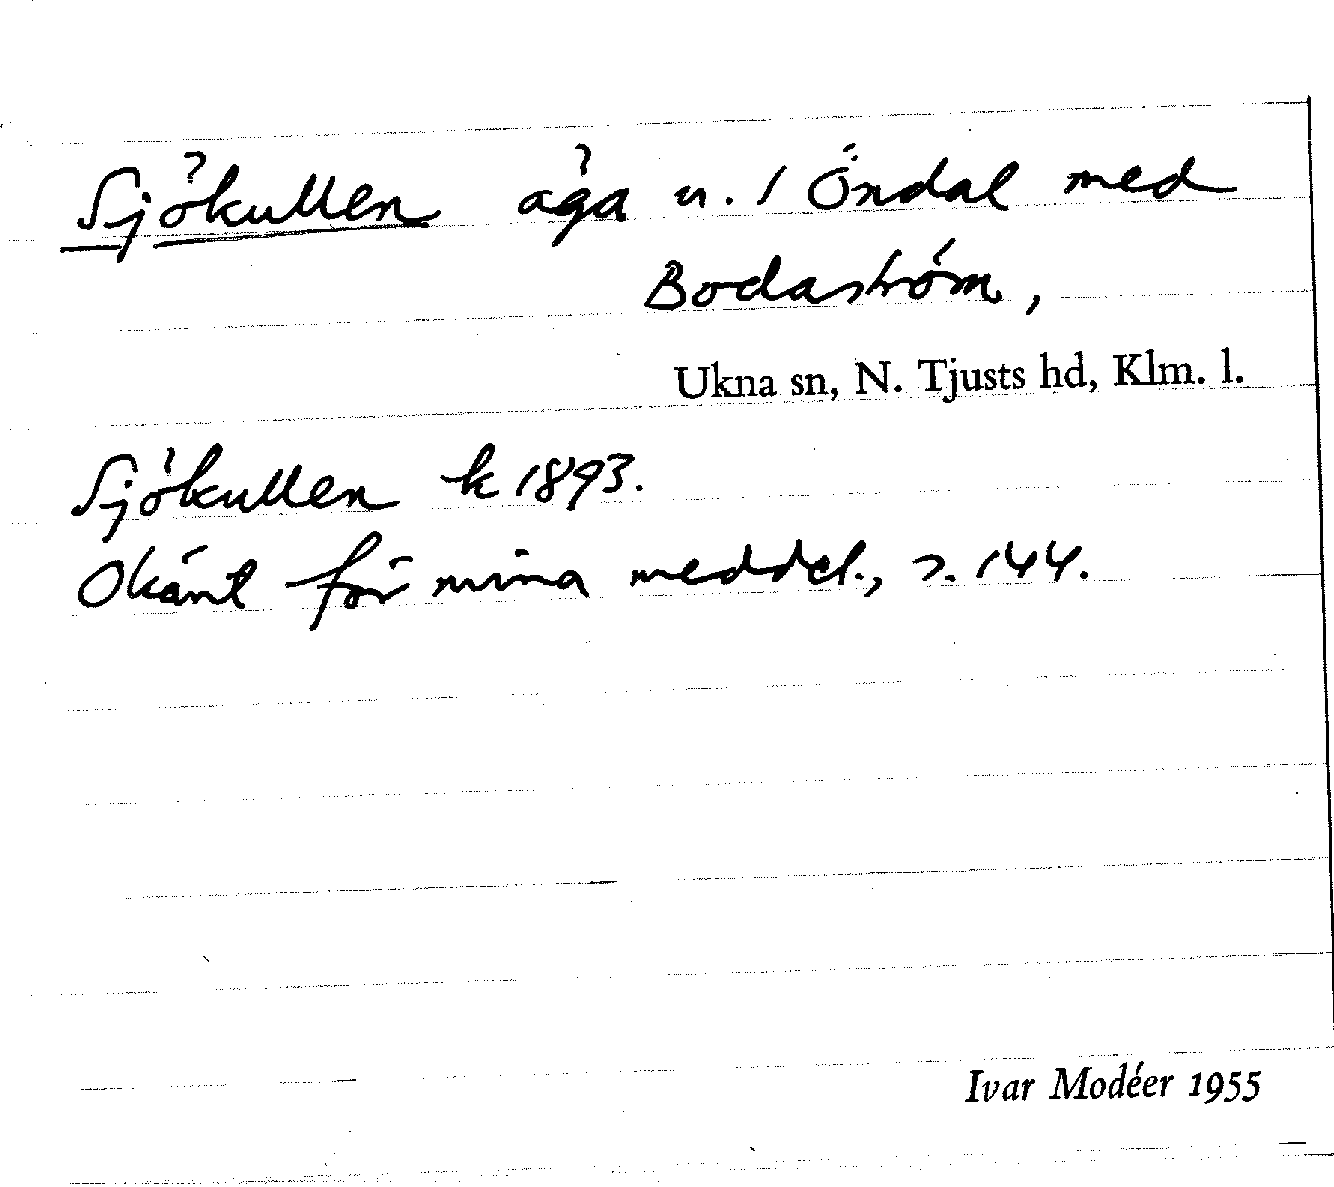 Sjökullen äga n. 1 Öndal med
Bodaström,
Ukna sn, N. Tjusts hd, Klm. l.
Sjökullen k 1893.
Okänt för mina meddel., s. 144.
Ivar Modéer 1955